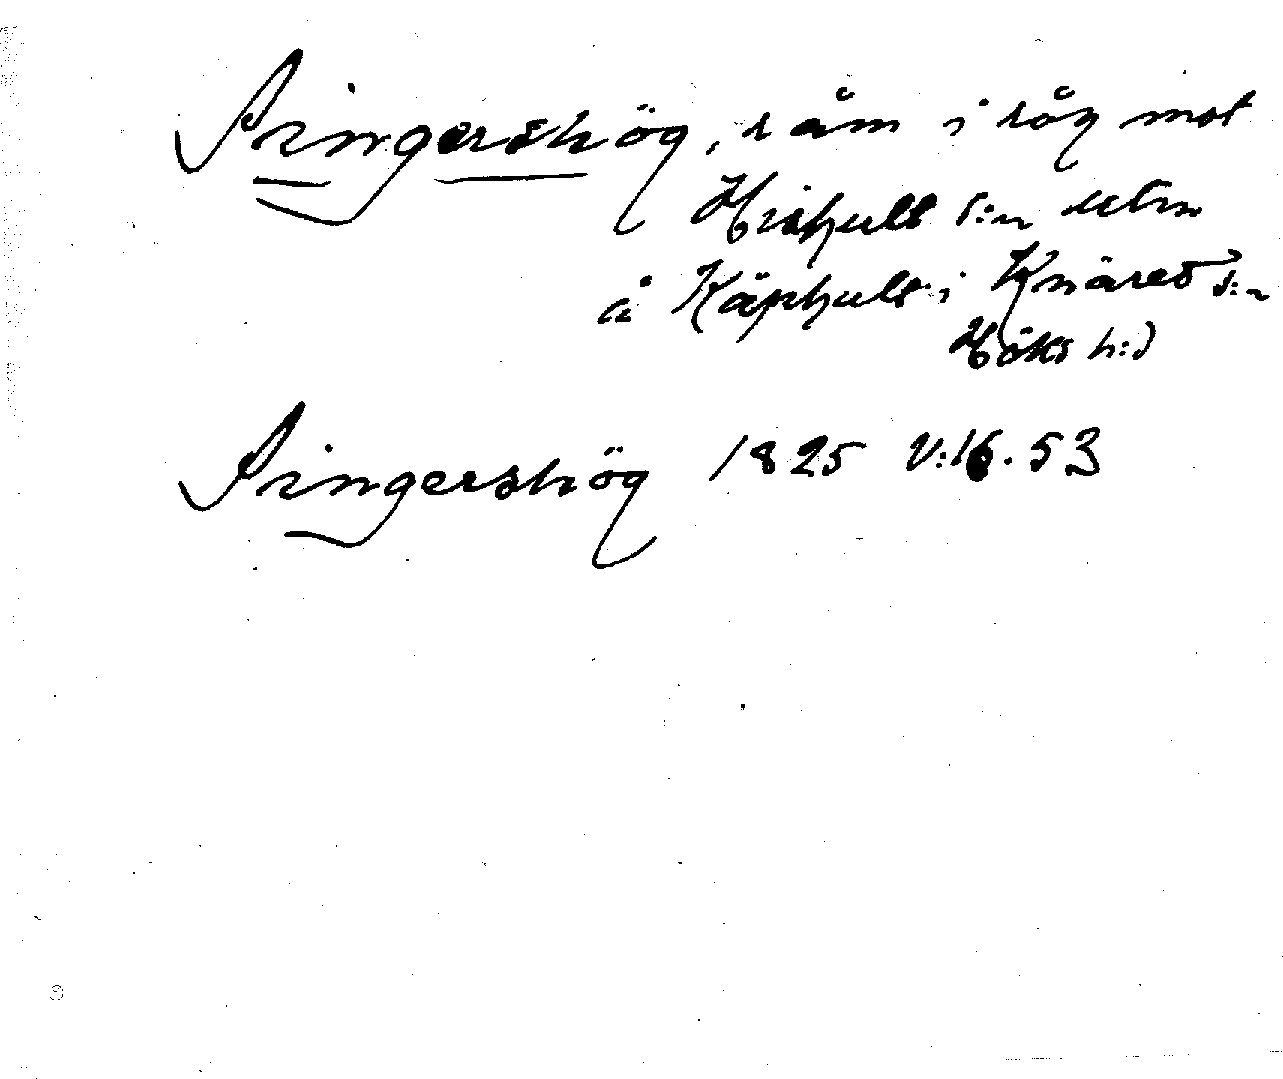 Sringershög, råm i råg mot
Hishult s:n utm
å Käphult i Knäred s:n
Höks h:d
Sringershög 1825 V:16.53